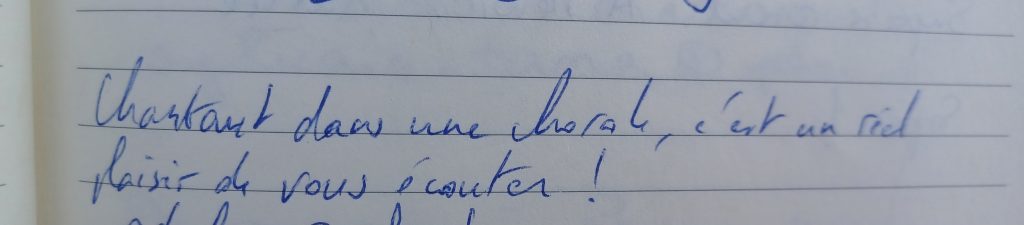 Chantant dans une chorale, c'est un réel
plaisir de vous écouter !